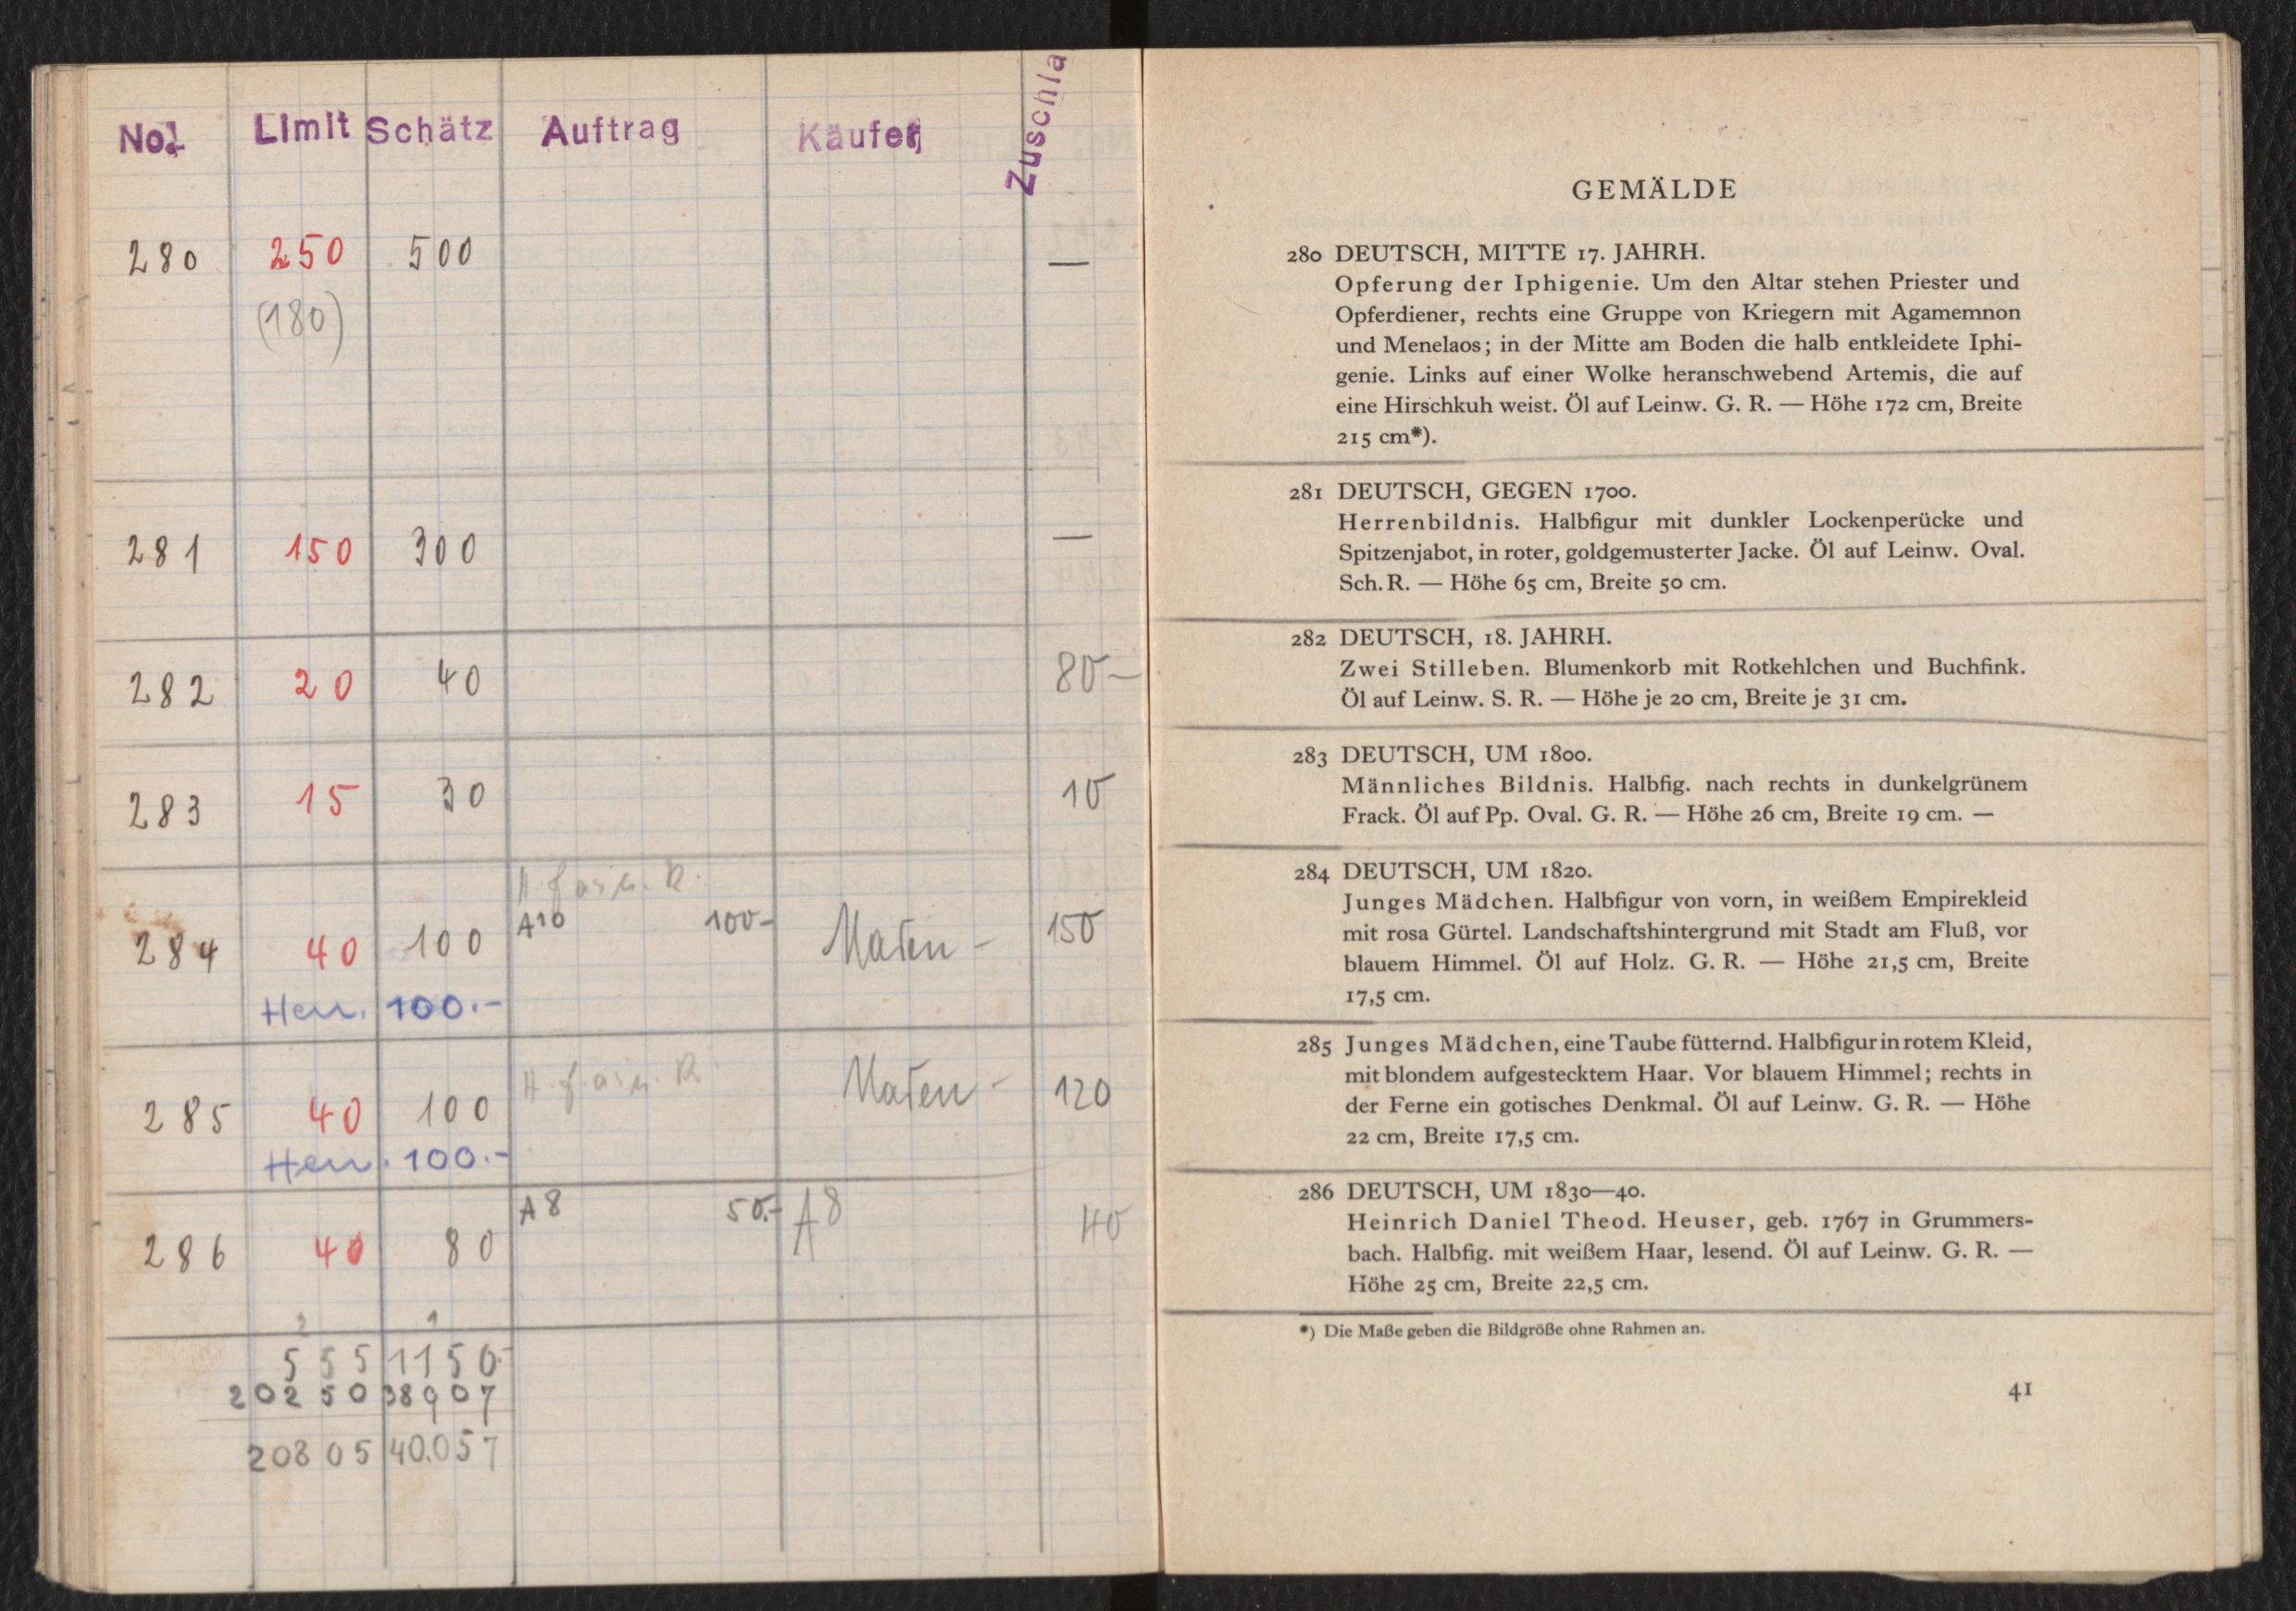 No. Limit Schätz Auftrag Käufer Zuschla
280 250 500 —
(180)
281 150 300 —
282 20 40 80-
283 15 30 10
A10 100-
284 40 100 150
100.-
285 40 100 120
100.-
A8 50.- A8
286 40 80 40
2 1
555 1150.-
20250 38907
20805 40.057
GEMÄLDE
280 DEUTSCH, MITTE 17. JAHRH.
Opferung der Iphigenie. Um den Altar stehen Priester und
Opferdiener, rechts eine Gruppe von Kriegern mit Agamemnon
und Menelaos; in der Mitte am Boden die halb entkleidete Iphi-
genie. Links auf einer Wolke heranschwebend Artemis, die auf
eine Hirschkuh weist. Öl auf Leinw. G. R. — Höhe 172 cm, Breite
215 cm*).
281 DEUTSCH, GEGEN 1700.
Herrenbildnis. Halbfigur mit dunkler Lockenperücke und
Spitzenjabot, in roter, goldgemusterter Jacke. Öl auf Leinw. Oval.
Sch. R. — Höhe 65 cm, Breite 50 cm.
282 DEUTSCH, 18. JAHRH.
Zwei Stilleben. Blumenkorb mit Rotkehlchen und Buchfink.
Öl auf Leinw. S. R. — Höhe je 20 cm, Breite je 31 cm.
283 DEUTSCH, UM 1800.
Männliches Bildnis. Halbfig. nach rechts in dunkelgrünem
Frack. Öl auf Pp. Oval. G. R. — Höhe 26 cm, Breite 19 cm. —
284 DEUTSCH, UM 1820.
Junges Mädchen. Halbfigur von vorn, in weißem Empirekleid
mit rosa Gürtel. Landschaftshintergrund mit Stadt am Fluß, vor
blauem Himmel. Öl auf Holz. G. R. — Höhe 21,5 cm, Breite
17,5 cm.
285 Junges Mädchen, eine Taube fütternd. Halbfigur in rotem Kleid,
mit blondem aufgestecktem Haar. Vor blauem Himmel; rechts in
der Ferne ein gotisches Denkmal. Öl auf Leinw. G. R. — Höhe
22 cm, Breite 17,5 cm.
286 DEUTSCH, UM 1830—40.
Heinrich Daniel Theod. Heuser, geb. 1767 in Grummers-
bach. Halbfig. mit weißem Haar, lesend. Öl auf Leinw. G. R. —
Höhe 25 cm, Breite 22,5 cm.
*) Die Maße geben die Bildgröße ohne Rahmen an.
41